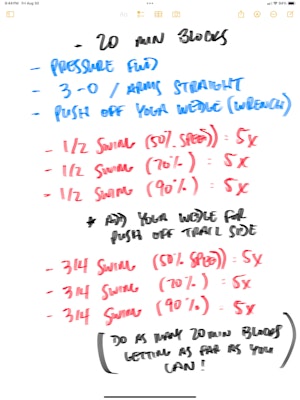 - 20 MIN BLOCKS
- PRESSURE FWD
- 3-0 / ARMS STRAIGHT
- PUSH OFF YOUR WEDGE (WRENCH)
- 1/2 SWING (50% SPEED) = 5X
- 1/2 SWING (70%) = 5X
- 1/2 SWING (90%) = 5X
* ADD YOUR WEDGE FOR
PUSH OFF TRAIL SIDE
- 3/4 SWING (50% SPEED) = 5X
- 3/4 SWING (70%) = 5X
- 3/4 SWING (90%) = 5X
(DO AS MANY 20 MIN BLOCKS
GETTING AS FAR AS YOU
CAN!)